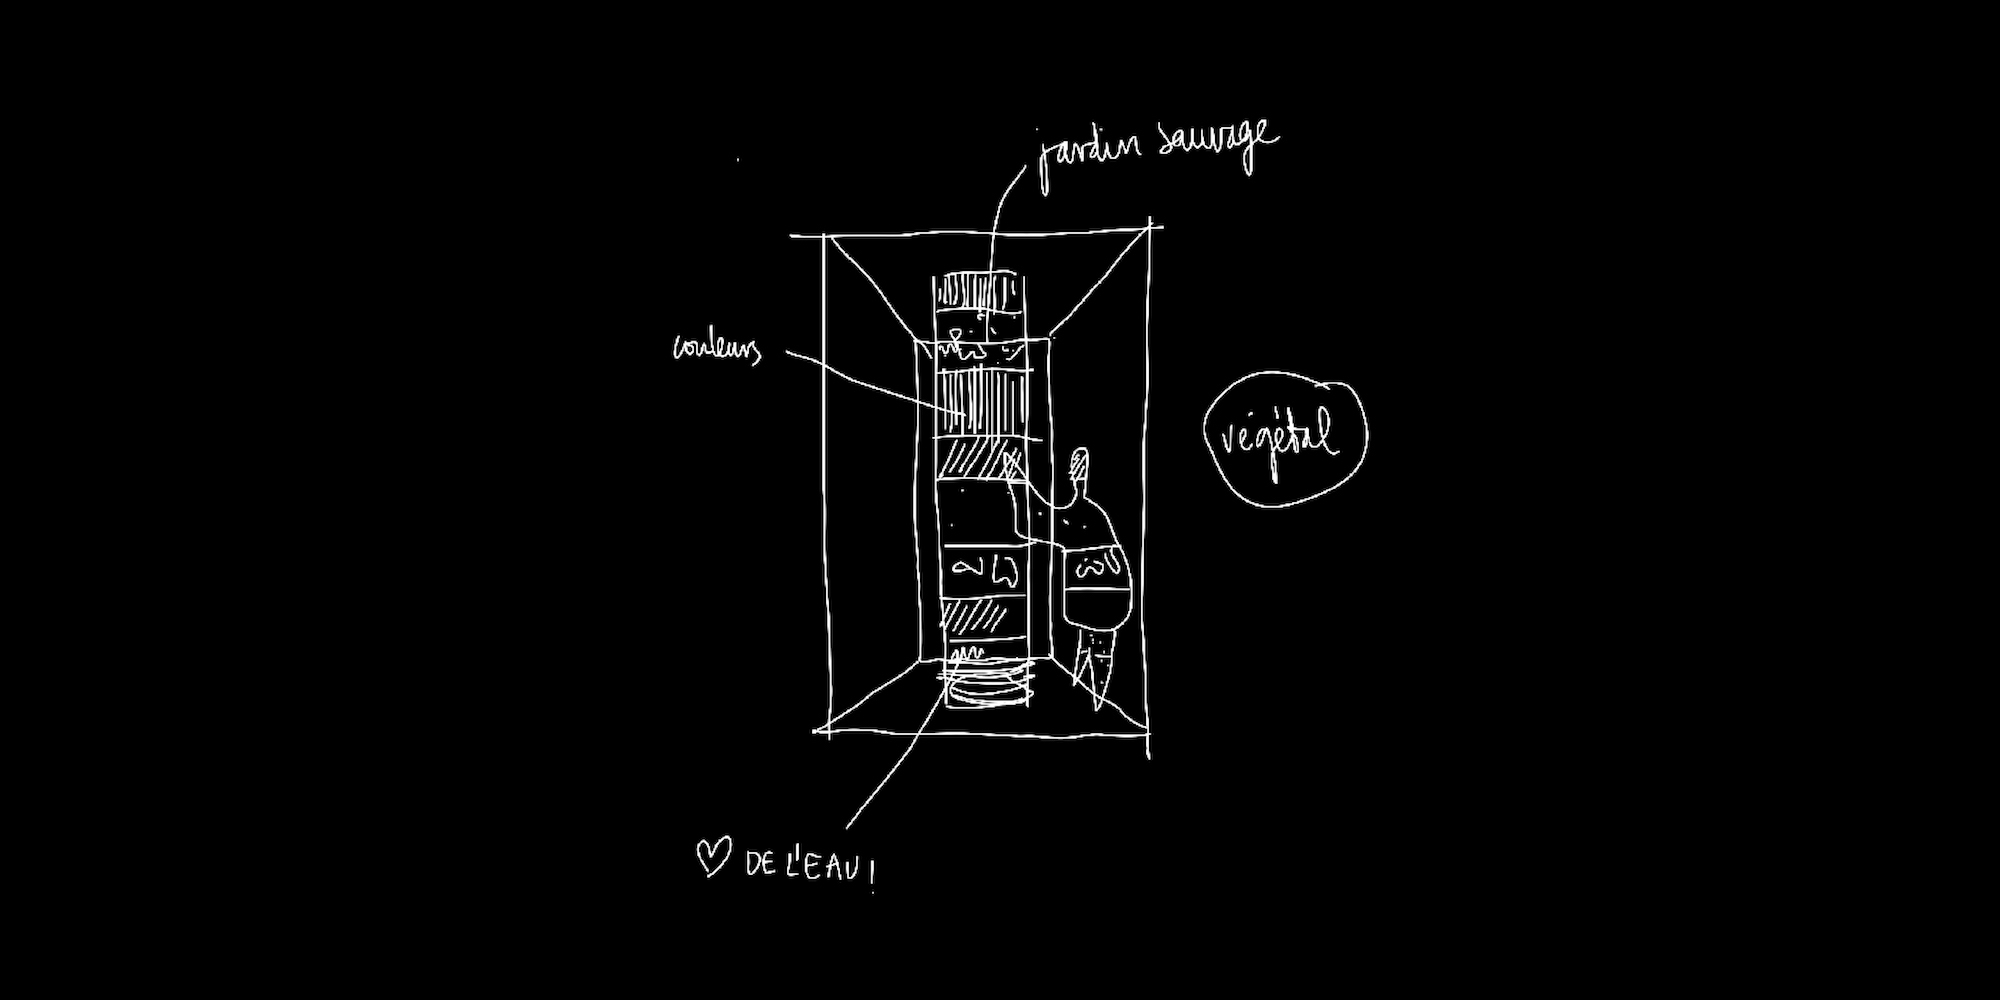 jardin sauvage
couleurs
végétal
♡ DE L'EAU!